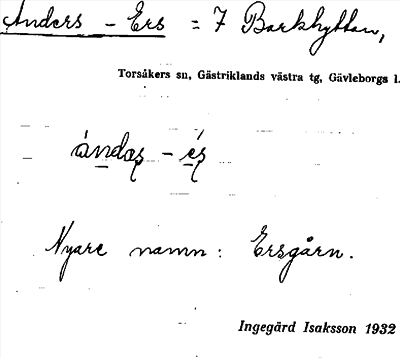 Anders - Ers = 7 Barkhyttan,
Torsåkers sn, Gästriklands västra tg, Gävleborgs l.
ándas - és
Nyare namn: Ersgårn.
Ingegärd Isaksson 1932